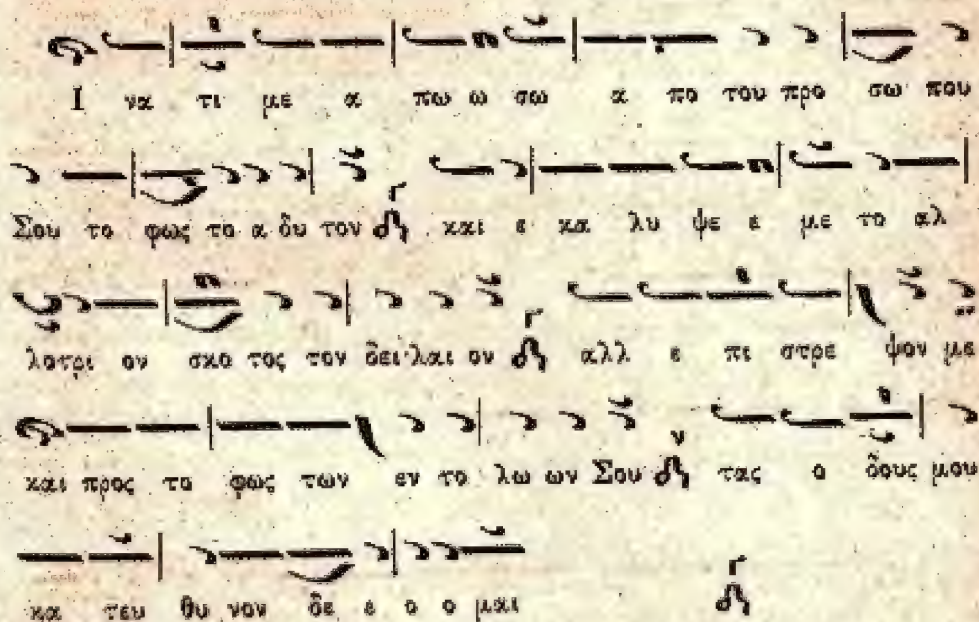 Ι να τι με α πω ω σω α πο του προ σω που
Σου το φως το α δυ τον και ε κα λυ ψε ε με το αλ
λοτρι ον σκο τος τον δει λαι ον αλλ ε πι στρε ψον με
και προς το φως των εν το λω ων Σου τας ο δους μου
κα τευ θυ νον δε ε ο ο μαι